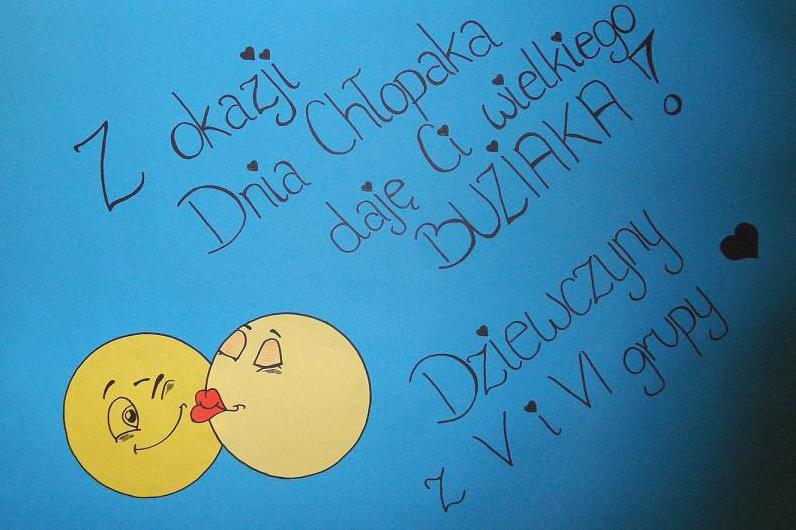 Z okazji
Dnia Chłopaka
daję Ci wielkiego
BUZIAKA!
Dziewczyny
z V i VI grupy